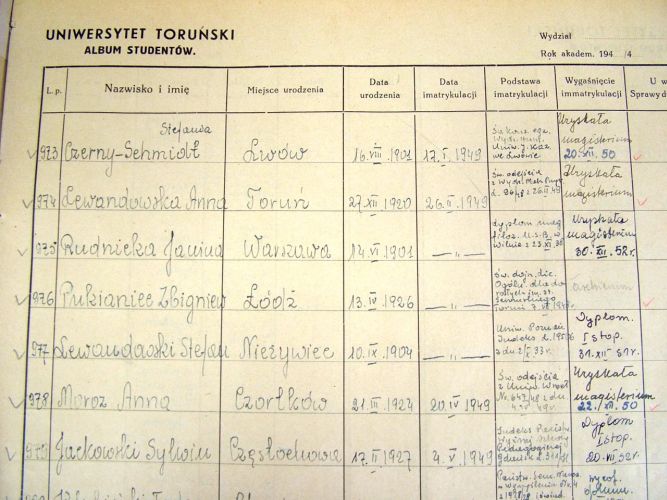 UNIWERSYTET TORUŃSKI
ALBUM STUDENTÓW.
Wydział
Rok akadem. 194 /4
L.p. Nazwisko i imię Miejsce urodzenia Data urodzenia Data imatrykulacji Podstawa imatrykulacji Wygaśnięcie immatrykulacji U w
Sprawy d
Stefania
973 Czerny-Schmidt Lwów 16.VIII.1901 17.I.1949 we Lwowie Uzyskała magisterium 20.XII.50
974 Lewandowska Anna Toruń 27.XII.1920 26.II.1949 Św. odejścia Uzyskała magisterium
975 Rudnicka Janina Warszawa 14.VI.1901 —„— dyplom mag. filoz. U.S.B. w Wilnie z 23.XI.38 Uzyskała magisterium 30.XII.52r.
976 Pukianiec Zbigniew Łódź 13.IV.1926 —„— Św. dojrz.
977 Lewandowski Stefan Nieżywiec 10.IX.1904 —„— Uniw. Poznań. Indeks Dyplom. I stop. 31.XII 51r.
978 Moroz Anna Czortków 21.III.1924 20.IV.1949 Św. odejścia z Uniw. Wrocł. Uzyskała magisterium 22.XII.50
979 Jackowski Sylwin Częstochowa 17.II.1927 4.V.1949 Indeks Państw. Wyższej Szkoły Pedagogicznej Dyplom I stop. 20.XII.52r.
Państw. Sem.